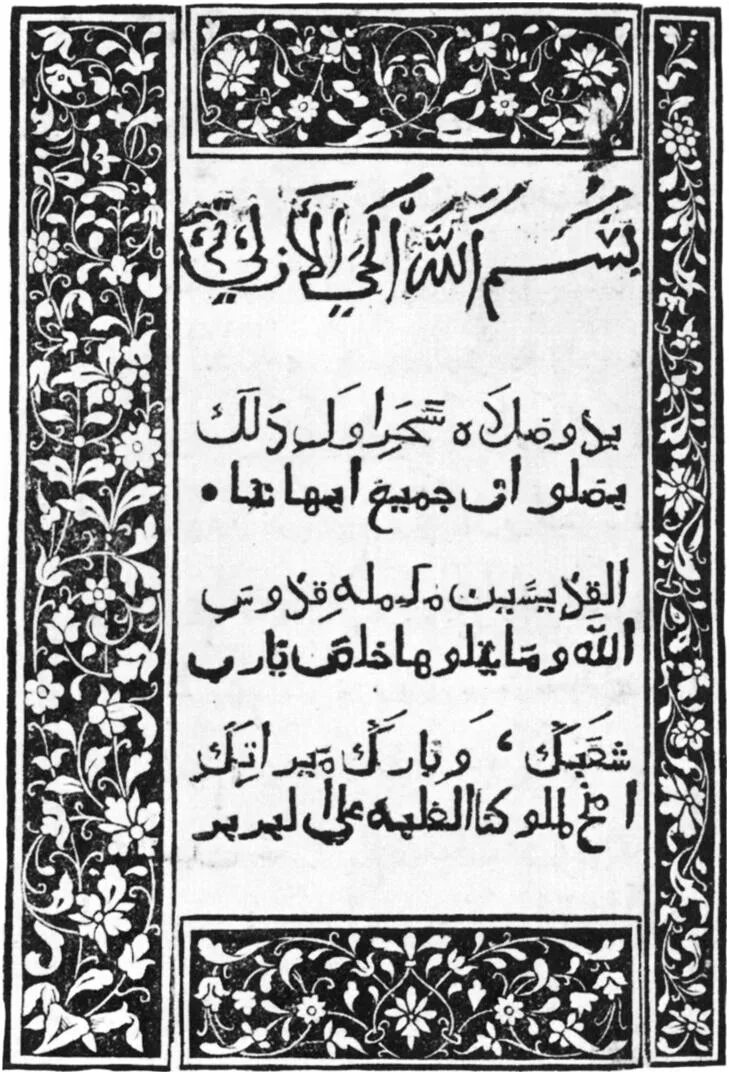 بِسْمِ اللَّهِ الْحَيِّ الْأَزَلِي
يدو صلاَه سَحَرِ اوَل ذلَك
يصلو ان جميع ابهاتنا •
القديسَين مكمله قِدوسِ
اللَّه ومَا يتلوها خلصَ يَارب
شعَبَك ، وَبَاركَ مَيراثِكَ
امنح لملوكنا الغلبه علي البربر